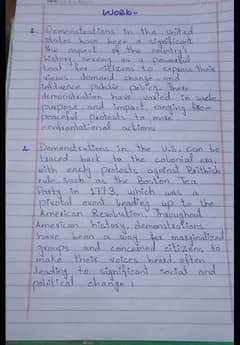 Work-
1. Demonstrations in the United
States have been a significant
the aspect of the country's
history, serving as a powerful
tool for citizens to express their
views, demand change, and
influence public policy. These
demonstration have varied in scale
purpose and impact, ranging from
peaceful protests to more
confrontational actions.
2. Demonstrations in the U.S. can be
traced back to the colonial era,
with early protests against British
rule such as the Boston Tea
Party in 1773, which was a
pivotal event leading up to the
American Revolution. Throughout
American history, demonstrations
have been a way for marginalized
groups and concerned citizens to
make their voices heard, often
leading to significant social and
political change.